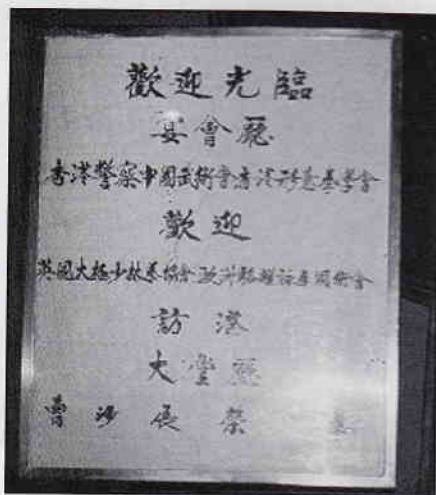 歡迎光臨
宴會廳
香港警察中國武術會香港形意拳學會
歡迎
英國太極少林拳協會歐洲 國術會
訪港
大堂廳